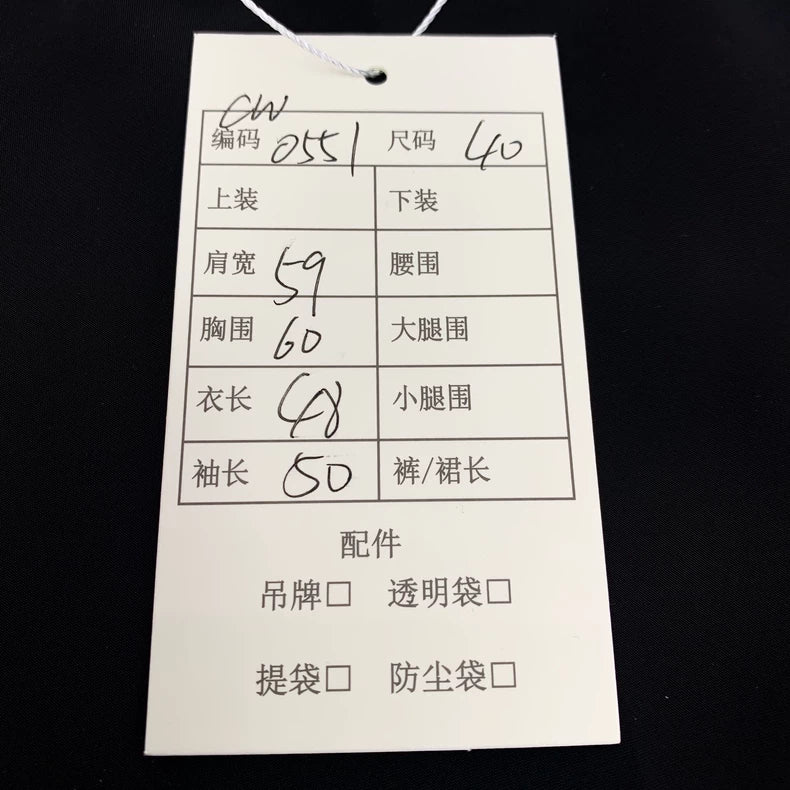 CW
编码 0551 尺码 40
上装 下装
肩宽 59 腰围
胸围 60 大腿围
衣长 48 小腿围
袖长 50 裤/裙长
配件
吊牌□ 透明袋□
提袋□ 防尘袋□